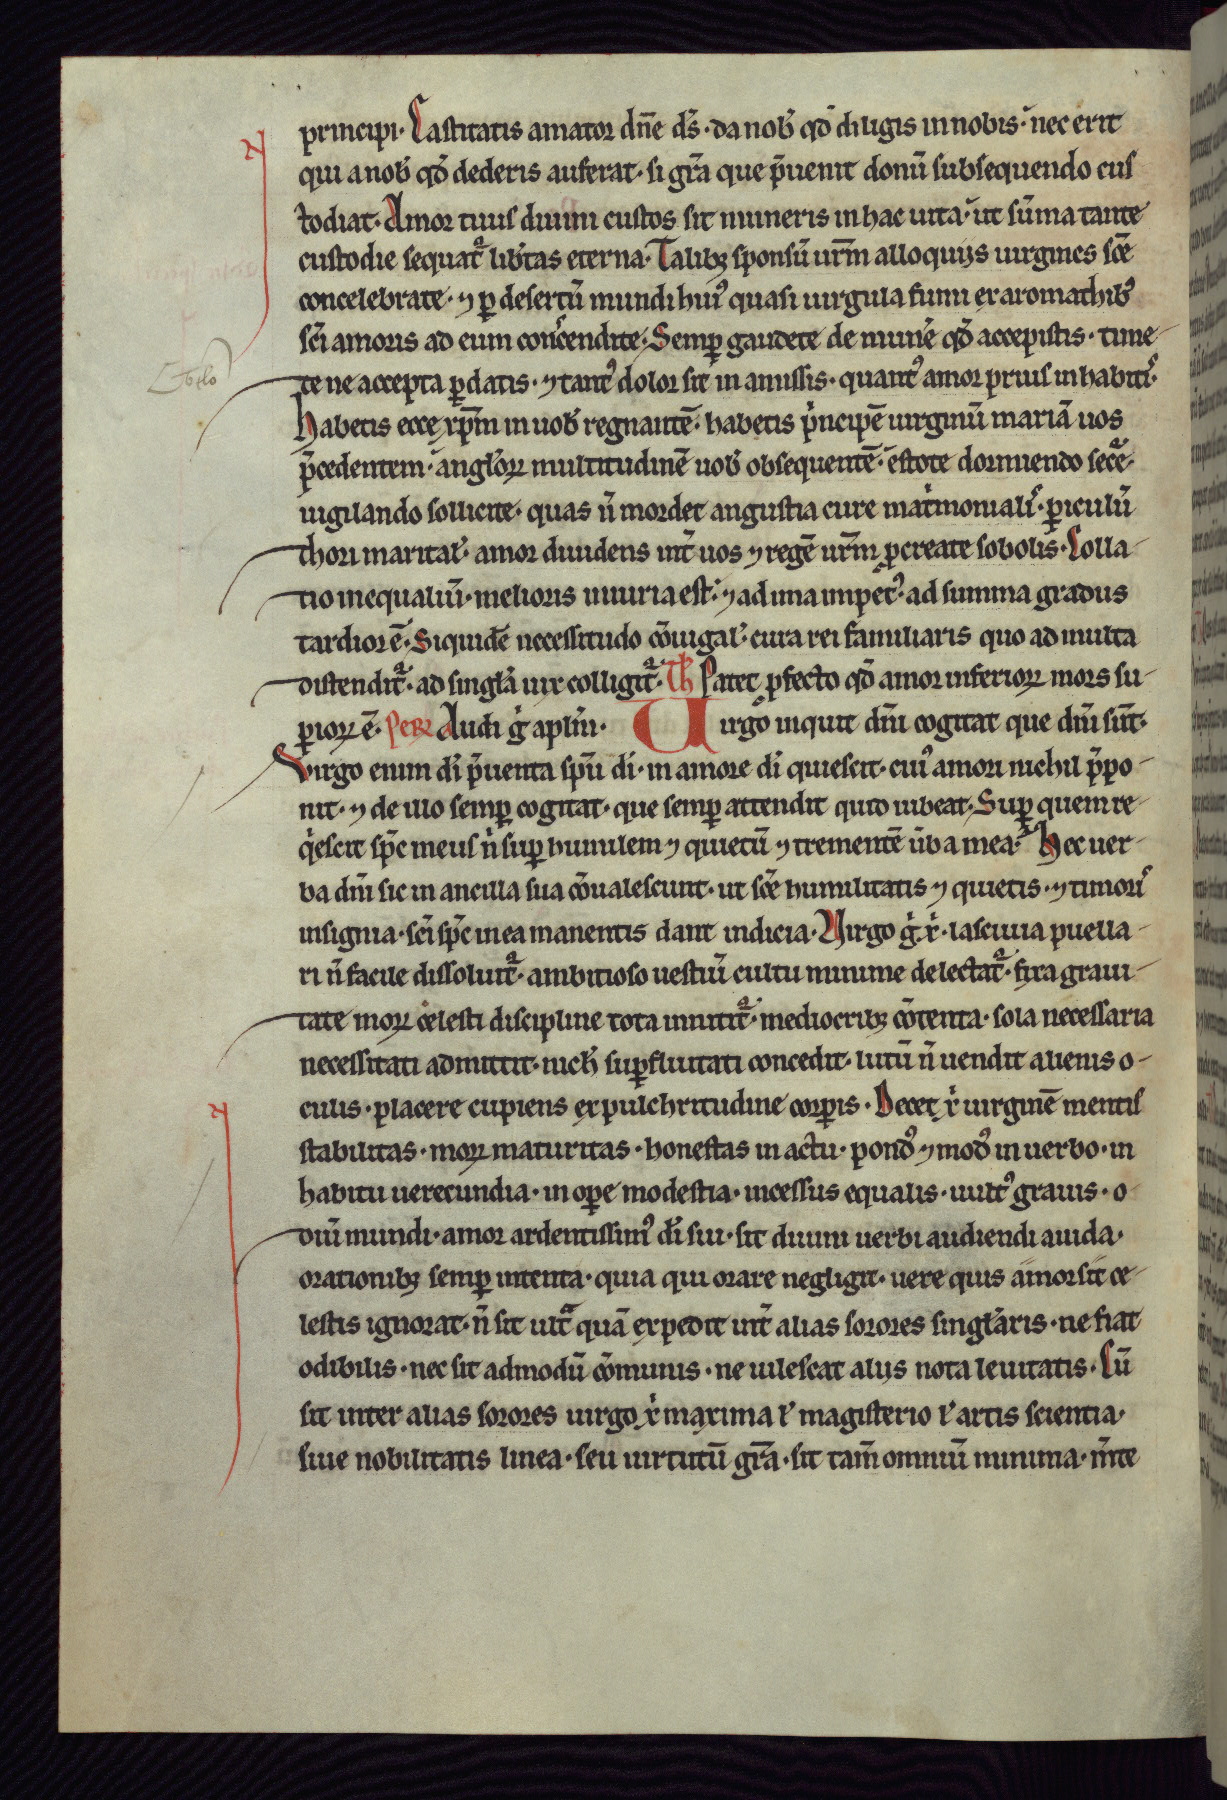 principi. Castitatis amator dn̄e ds̄. da nob̄ qd̄ diligis in nobis. nec erit
qui a nob̄ qd̄ dederis auferat. si gr̄a que p̄uenit donū subsequendo cus
todiat. Amor tuus diuini custos sit muneris in hac uita. ut sūma tante
custodie sequat᷑ lib̄tas eterna. Talibꝫ sponsū ur̄m alloquijs uirgines sc̄e
concelebrate. ⁊ ꝑ desertū mundi huiꝰ quasi uirgula fumi ex aromathibꝰ
sc̄i amoris ad eum conscendite. Semꝑ gaudete de mun̄e qd̄ accepistis. time
te ne accepta ꝑdatis. ⁊ tantꝰ dolor sit in amissis. quantꝰ amor prius in habitis.
Habetis ecce xp̄m in uob̄ regnantē. habetis pͥncipē uirginū mariā uos
p̄cedentem. angl̄oꝝ multitudinē uob̄ obsequentē. estote dormiendo secᷓe.
uigilando sollicite. quas n̄ mordet angustia cure matͥmonialis. ꝑiculū
thori marital̄. amor diuidens int̄ uos ⁊ regē ur̄m ꝓcreate sobolis. Colla
tio inequaliū. melioris iniuria est. ⁊ ad ima impetꝰ. ad summa gradus
tardior ē. Siquidē necessitudo cōiugal̄. cura rei familiaris quo ad multa
distendit᷑. ad singl̄a uix colligit᷑. Th̄ Patet ꝓfecto qd̄ amor inferioꝝ mors su
ꝑioꝝ ē. Petꝝ Audi gͦ apl̄m. Uirgo inquit dn̄i cogitat que dn̄i sūt.
Virgo enim di p̄uenta sp̄u di. in amore di quiescit. cuiꝰ amori nichil p̄po
nit. ⁊ de illo semꝑ cogitat. que semꝑ attendit quid iubeat. Suꝑ quem re
qͥescit sp̄c meus nͥ suꝑ humilem ⁊ quietū ⁊ trementē ūba mea. Hec uer
ba dn̄i sic in ancilla sua cōualescunt. ut sc̄e humilitatis ⁊ quietis. ⁊ timoris
insignia. sc̄i sp̄c in ea manentis dant indicia. Virgo gͦ xͥ. lasciuia puella
ri n̄ facile dissoluit᷑. ambitioso uestiū cultu minime delectat᷑. fixa graui
tate moꝝ celesti discipline tota innitit᷑. mediocribꝫ cōtenta. sola necessaria
necessitati admittit. nich̄ suꝑfluitati concedit. lutū n̄ uendit alienis o
culis. placere cupiens ex pulchritudine corꝑis. Decet xͥ uirginē mentis
stabilitas. moꝝ maturitas. honestas in actu. pondꝰ ⁊ modꝰ in uerbo. in
habitu uerecundia. in oꝑe modestia. incessus equalis. uultꝰ grauis. o
diū mundi. amor ardentissimꝰ di sui. sit diuini uerbi audiendi auida.
orationibꝫ semꝑ intenta. quia qui orare negligit. uere quis amor sit ce
lestis ignorat. n̄ sit ultᷓ quā expedit int̄ alias sorores singl̄aris. ne fiat
odibilis. nec sit admodū cōmunis. ne uilescat alijs nota leuitatis. Cū
sit inter alias sorores uirgo xͥ maxima l̄ magisterio l̄ artis scientia.
siue nobilitatis linea. seu uirtutū gr̄a. sit tam̄ omniū minima. m̄te